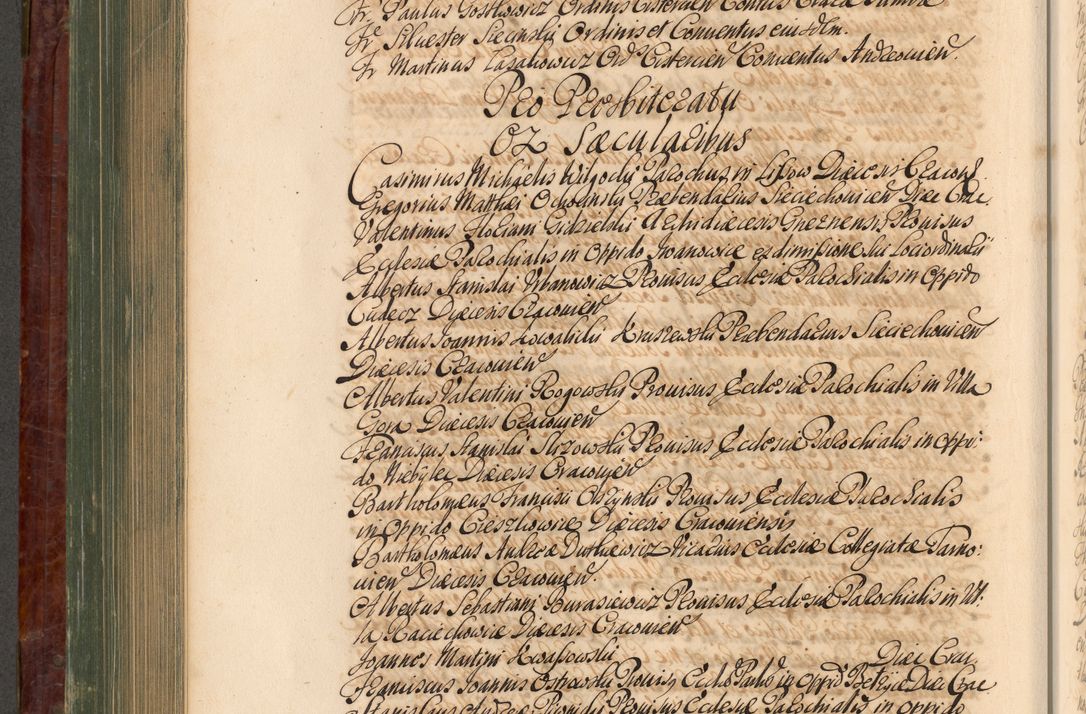 Fr. Paulus Gostkowicz Ordinis Cistercien Conventus
Fr. Silvester Siecinski Ordinis et Conventus eiusdem.
Fr. Martinus Zasakowicz Ord. Cistercien Conventus Andreovien.
Pro Presbiteratu
Ex Sæcularibus
Casimirus Michaelis Wilgocki Parochus in Lissow Diæcesis Cracov.
Gregorius Matthæi Ocholinski Præbendarius Sieciechovicen Diæc Crac.
Valentinus Floriani Gidzielski Archidiæcesis Gneznensis Provisus
Ecclesiæ Parochialis in Oppido Iwanowice ex dimissione sui loci ordinarii
Albertus Stanislai Urbanowicz Provisus Ecclesiæ Parochialis in Oppido
Cudecz Diæcesis Cracovien
Albertus Joannis Kowalicki Kruszewski Præbendarius Sieciechovicen
Diæcesis Cracovien
Albertus Valentini Rogowski Provisus Ecclesiæ Parochialis in Villa
Gora Diæcesis Cracovien
Franciscus Stanislai Strzowski Provisus Ecclesiæ Parochialis in Oppi:
do Niebylec Diæcesis Cracovien
Bartholomeus Francisci Oszynski Provisus Ecclesiæ Parochialis
in Oppido Cieszkowice Diæcesis Cracoviensis
Bartholomæus Andreæ Dutkiewicz Vicarius Ecclesiæ Collegiatæ Tarno:
vien Diæcesis Cracovien.
Albertus Sebastiani Burasiewicz Provisus Ecclesiæ Parochialis in Vil:
la Raciechowice Diæcesis Cracovien
Joannes Martini Kwassowski Diæc Crac.
Franciscus Joannis Ostrowski Provis Eccles Paroch in Oppid Diæc Crac
Stanislaus Andreæ Provisus Ecclesiæ Parochialis in Oppido